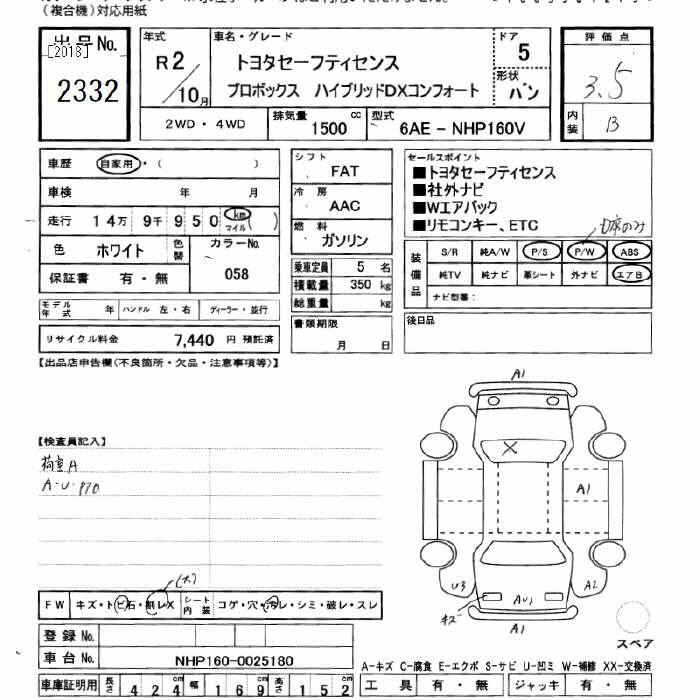 (複合機)対応用紙
出品No.
[2018]
2332
年式
R2/10月
車名・グレード
トヨタセーフティセンス
プロボックス ハイブリッドDXコンフォート
ドア
5
形状
バン
評価点
3.5
内装 B
2WD・4WD
排気量 1500 cc
型式 6AE－NHP160V
車歴 自家用・( )
車検 年 月
走行 14万 9千 950 km マイル ( )
色 ホワイト 色替 カラーNo.
保証書 有・無 058
モデル年式 年 ハンドル 左・右 ディーラー・並行
リサイクル料金 7,440 円 預託済
シフト
FAT
冷房
AAC
燃料
ガソリン
乗車定員 5 名
積載量 350 kg
総重量 kg
書類期限
月 日
セールスポイント
■トヨタセーフティセンス
■社外ナビ
■Wエアバック
■リモコンキー、ETC
装備品
S/R 純A/W P/S P/W ABS
純TV 純ナビ 革シート 外ナビ エアB
ナビ型番：
後日品
【出品店申告欄(不良箇所・欠品・注意事項等)】
【検査員記入】
荷室A
A-U-P70
A1
X
A1
U3
A2
キズ
AU1
A1
スペア
(大)
FW キズ・トビ石・割レX
シート内装 コゲ・穴・汚レ・シミ・破レ・スレ
登録No.
車台No. NHP160-0025180
A-キズ C-腐食 E-エクボ S-サビ U-凹ミ W-補修 XX-交換済
車庫証明用 長さ 424cm 幅 169cm 高さ 152cm
工具 有・無 ジャッキ 有・無